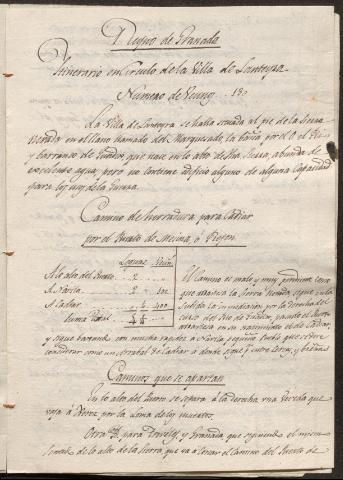 Reyno de Granada
Itinerario en Circulo de la Villa de Lanteyra
Numero de Vecinos 180
La Villa de Lanteyra se halla situada al pie de la Sierra
Nevada en el llano llamado del Marquesado, la baña por el O el Rio
y barranco de que nace en lo alto de dha Sierra, abunda de
excelente agua, pero no contiene edificio alguno de alguna Capacidad
para los de la Guerra.
Camino de herradura para Cadiar
por el Puerto de Mecina, ó Rejon
Leguas Vecin.
A lo alto del Puerto 2
A Narila 2 100
A Cadiar 400
Suma Total
El Camino es malo y muy pendiente
que atraviesa la Sierra Nevada, sigue a la
Subida la inmediacion por la derecha del
curso del Rio de pasado el Puerto
atraviesa en su nacimiento el de Cadiar,
y sigue barranco con mucha rapidez a Narila pequeña Puebla que se debe
considerar como un arrabal de Cadiar á donde sigue entre
Caminos que se apartan
En lo alto del Puerto se separa á la derecha una Vereda que
baja á Berja por la Loma de los muertos.
Otra para Trevelez, y Granada que siguiendo el mismo
de lo alto de la Sierra, que va a tomar el Camino del Puerto de